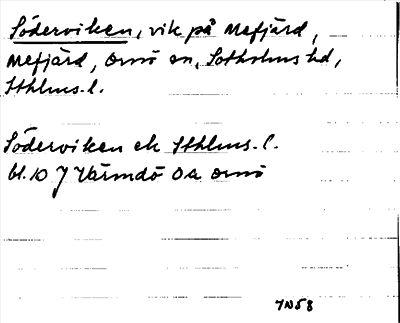 Söderviken, vik på Mefjärd,
Mefjärd, Ornö sn, Sotholms hd,
Sthlms. l.
Söderviken ek Sthlms. l.
bl. 10 J Värmdö Oa Ornö
IN58